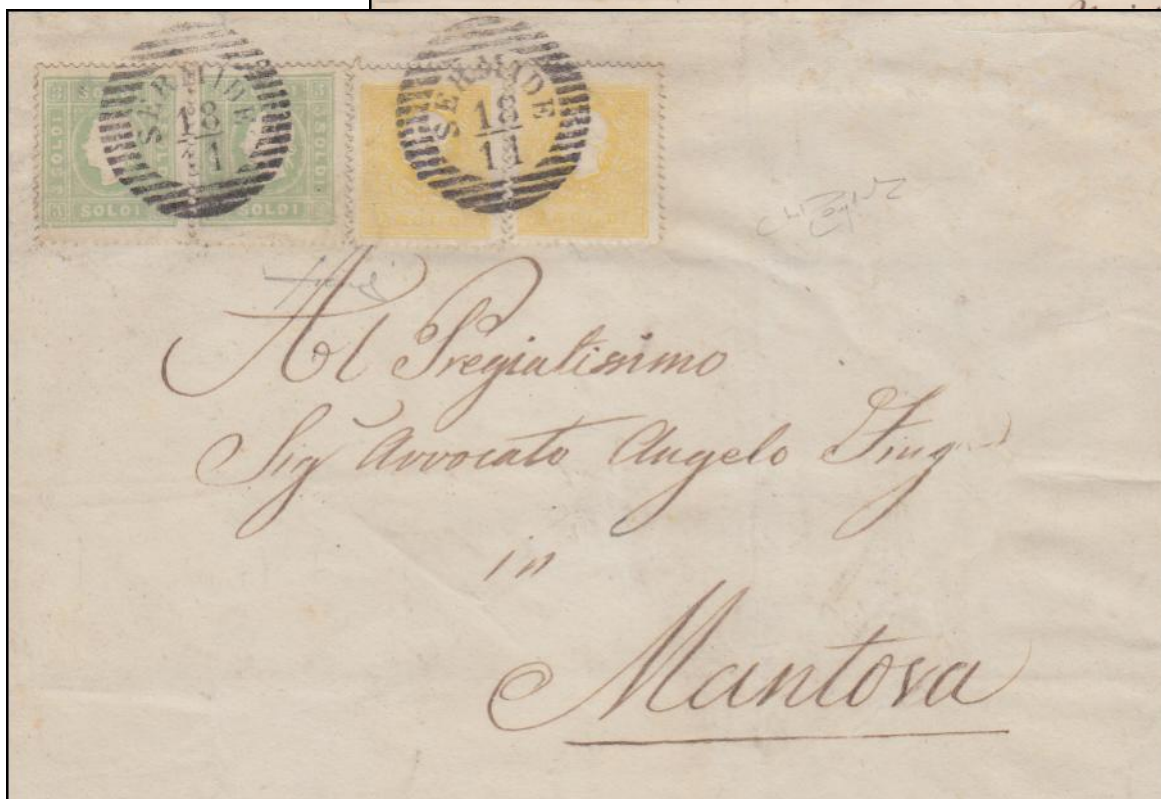 SOLDI
SOLDI
3 SOLDI
SOLDI
SOLDI
SERMIDE
18
1
SERMIDE
18
11
Al Pregiatissimo
Sig Avvocato Angelo
in
Mantova